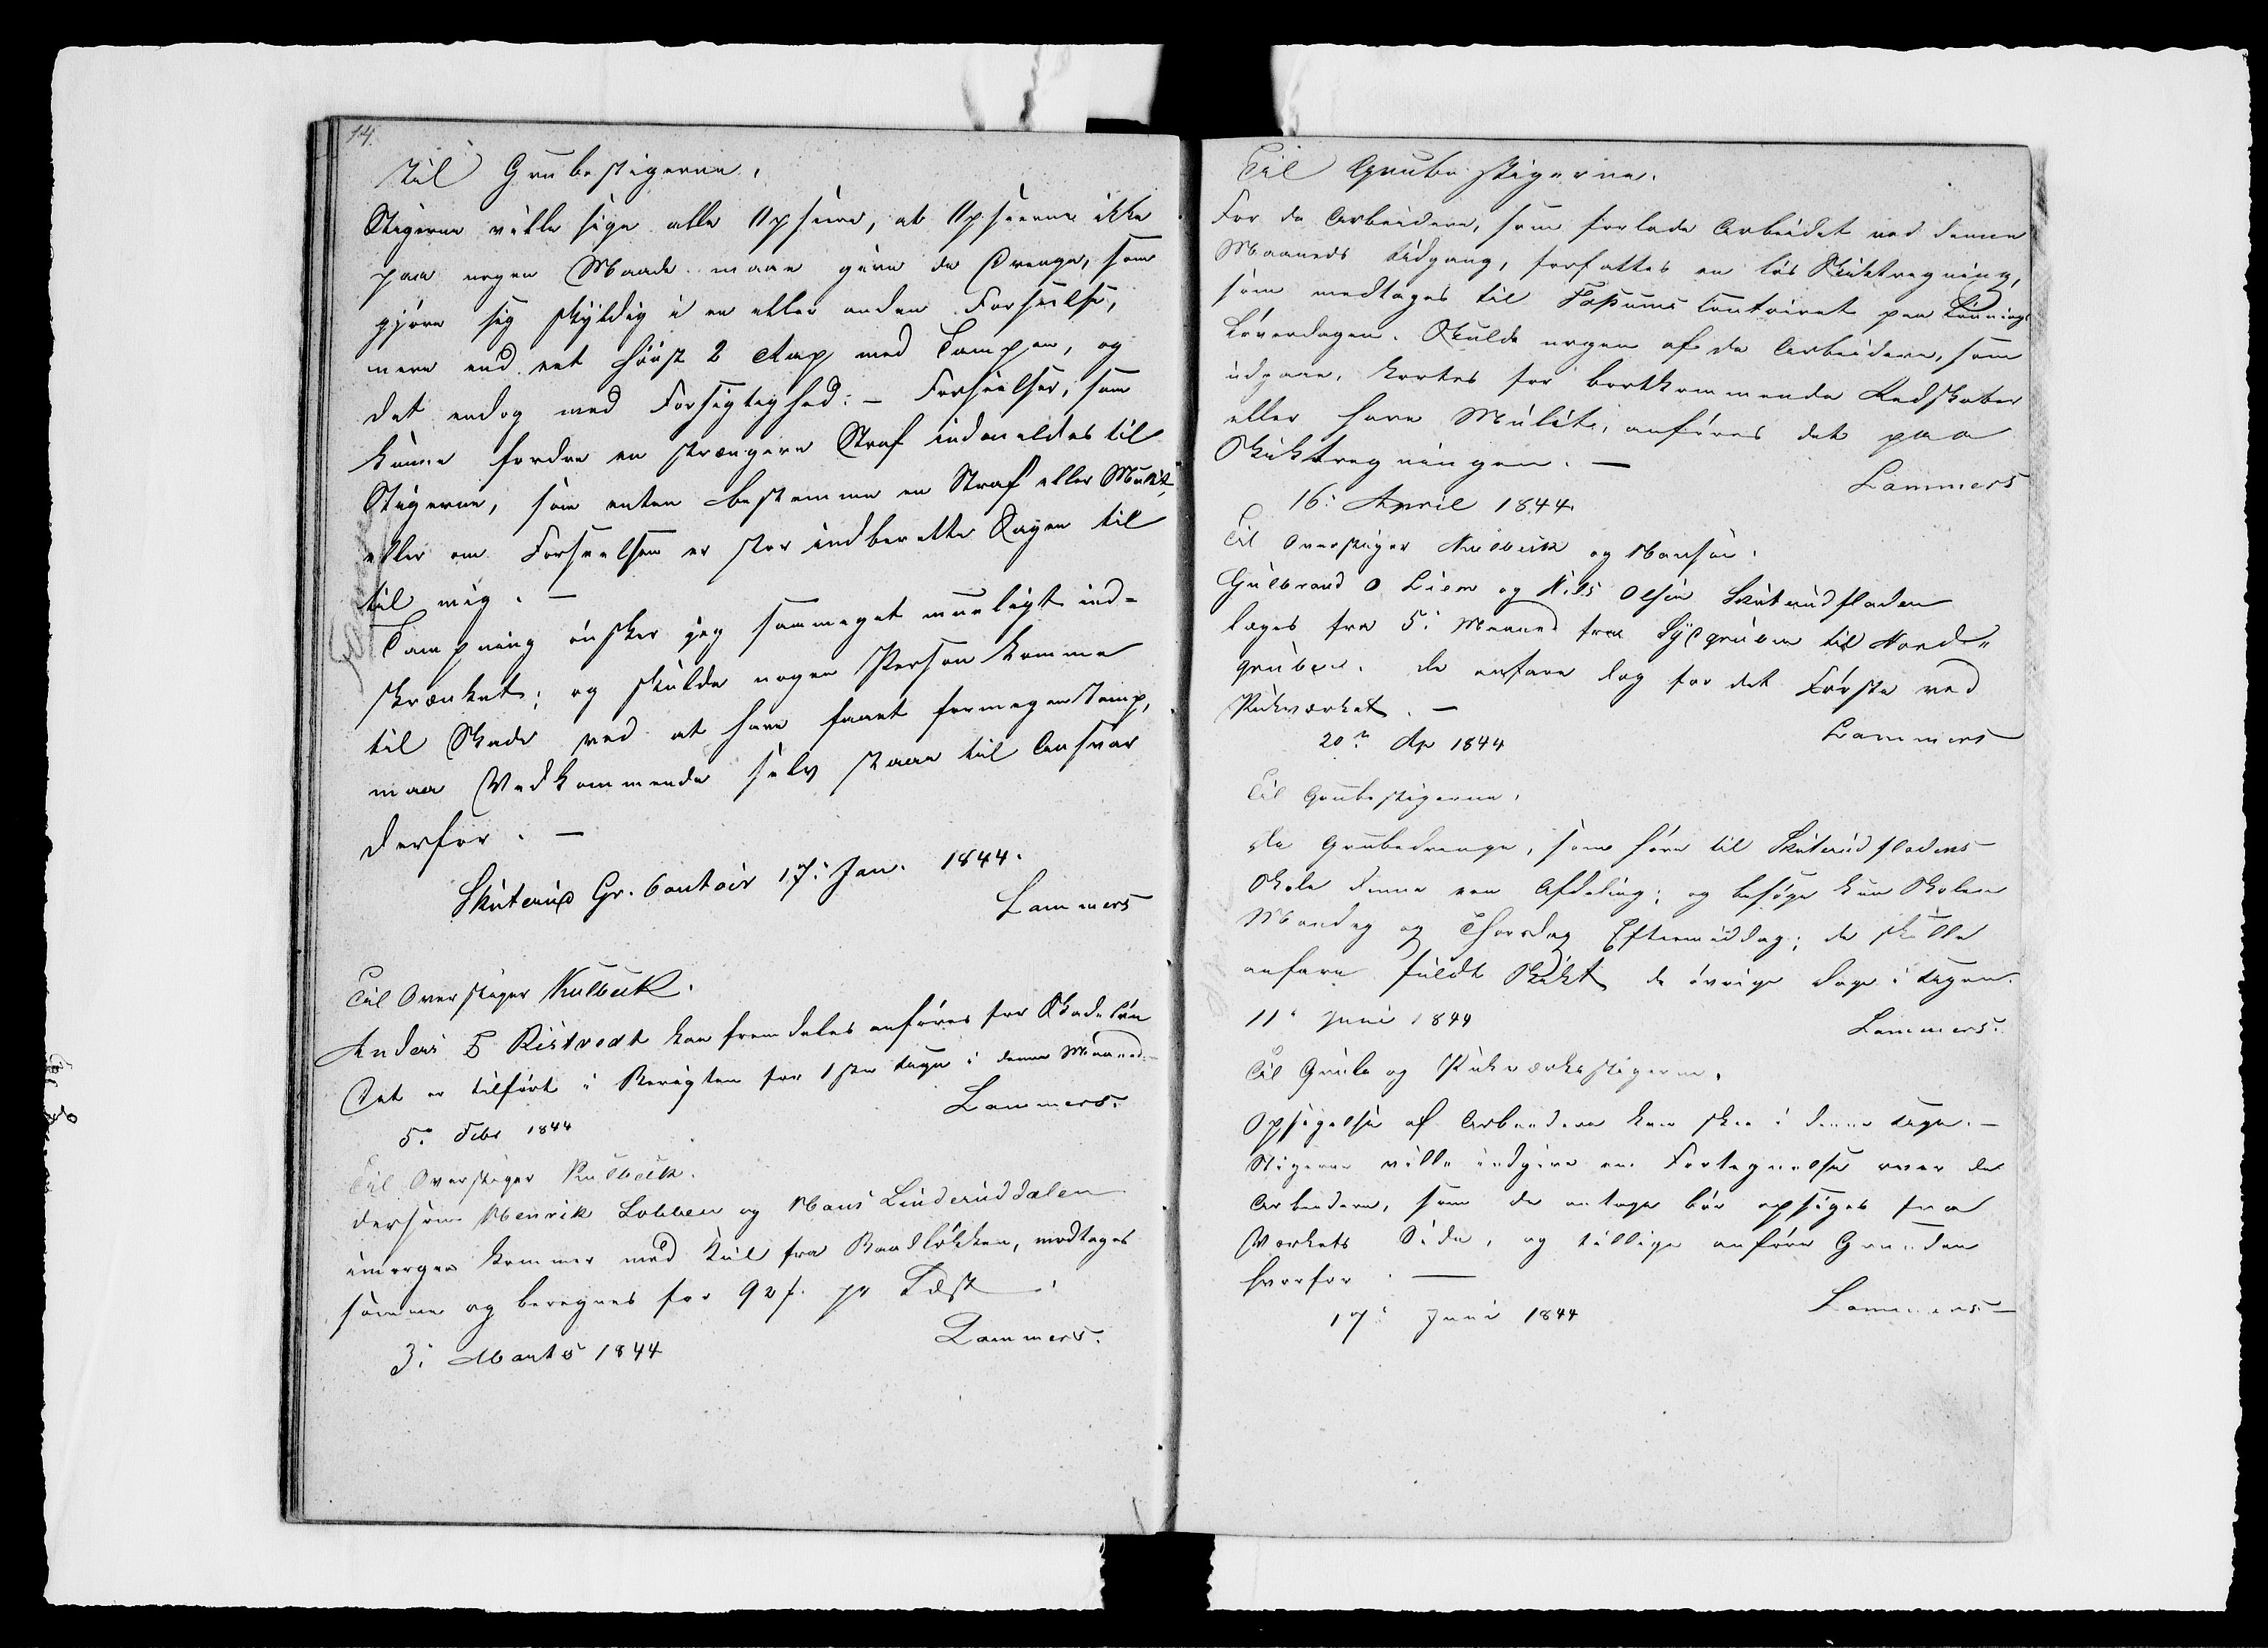 14.
Til Grubestigerne.
Stigerne ville sige alle Opseere, at Opseerne ikke
paa nogen Maade maae give de Drenge, som
gjöre sig skyldig i en eller anden Forseelse,
mere end et höist 2 Rap med Tampen, og
det endog med Forsigtighed: - Forseelser, som
kunne fordre en strængere Straf indmeldes til
Stigerne, som enten bestemme en Straf eller Mulct,
eller om Forseelsen er stor indberette Sagen til
til mig. -
Tampning önsker jeg saameget mueligt ind-
skrænket; og skulde nogen Person komme
til Skade ved at have faaet formegen Tamp,
maa Vedkommende selv staae til Ansvar
derfor. -
Skuterud Gr. Contoir 17: Jan. 1844.
Lammers
Til Overstiger Kulbeck.
Anders Ristvedt kan fremdeles anföres for Skadelön
Det er tilfört i Rapigten for 1ste Uge i denne Maaned.
Lammers.
5: Febr 1844
Til Overstiger Kulbeck.
Dersom Henrik Lobben og Hans Linderuddalen
imorgen kommer med Kul fra Baadlökken, modtages
samme og beregnes for 92 f. pr Læst.
Lammers.
3: Marts 1844
Til Grubestigerne.
For de Arbeidere, som forlade Arbeidet ved denne
Maaneds Udgang, forfattes en lös Skiktregning,
som medtages til Fossums Contoiret paa Lönnings
Löverdagen. Skulde nogen af de Arbeidere, som
udgaae, kortes for bortkommende Redskaber
eller have Mulct, anföres det paa
Skiktregningen. -
Lammers
16: April 1844.
Til Overstiger Kulbeck og Hansen.
Gulbrand O Lien og Nils Olsen Skuterudfladen
tages fra 5: Maaned fra Sydgruben til Nord-
gruben. De anfare dog for det Förste ved
Pukværket. -
Lammers
20: Ap 1844
Til Grubestigerne.
De Grubedrenge, som höre til Skuterudfladens
Skole danne een Afdeling; og besöge kun Skolen
Mandag og Thorsdag Eftermiddag; de skulle
anfare fuldt Skikt de övrige Dage i Ugen.
11: Juni 1844
Lammers.
Til Grube og Pukværksstigerne.
Opsigelse af Arbeidere kan skee i denne Uge. -
Stigerne ville indgive en Fortegnelse over de
Arbeidere, som de antage bör opsiges fra
Værkets Side, og tillige anföre Grunden
hvorfor. -
Lammers -
17: Juni 1844